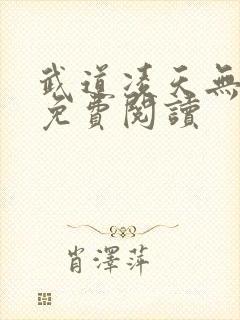 武道凌天無
免費閱讀
肖澤萍